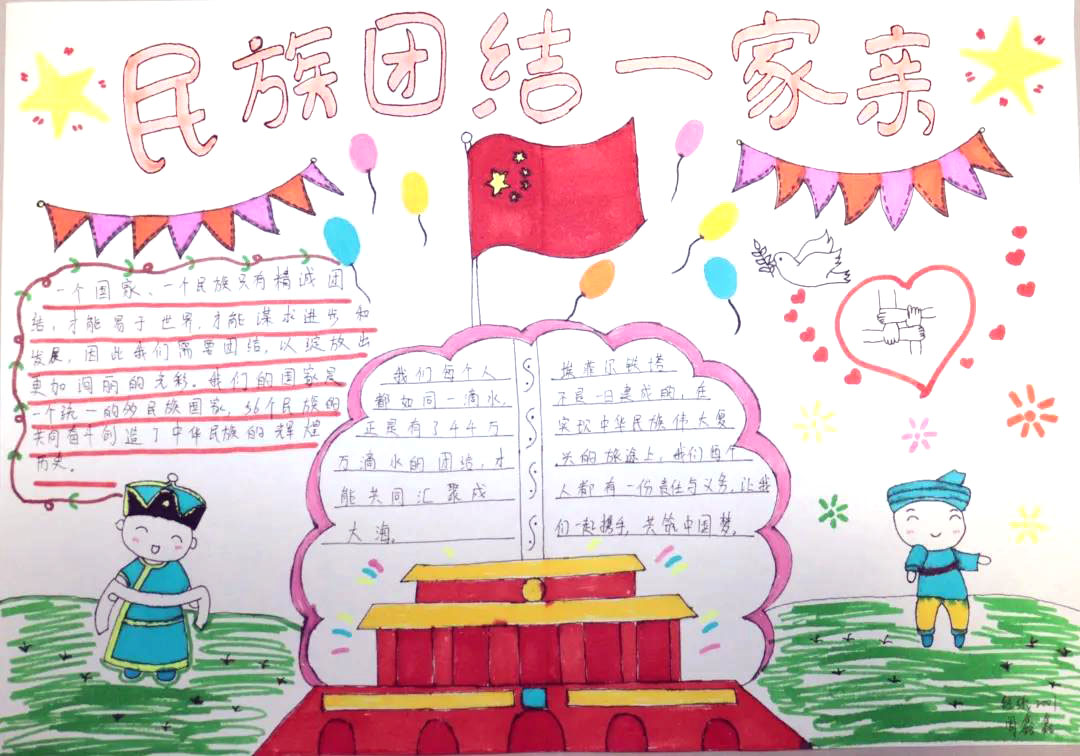 民族团结一家亲
一个国家、一个民族只有精诚团
结，才能易于世界，才能谋求进步和
发展，因此我们需要团结，以绽放出
更加润丽的光彩。我们的国家是
一个统一的多民族国家，56个民族的
共同奋斗创造了中华民族的辉煌
历史。
我们每个人
都如同一滴水，
正是有了44万
万滴水的团结，才
能共同汇聚成
大海。
埃菲尔铁塔
不是一日建成的，在
实现中华民族伟大复
兴的旅途上，我们每个
人都有一份责任与义务，让我
们一起携手，共筑中国梦。